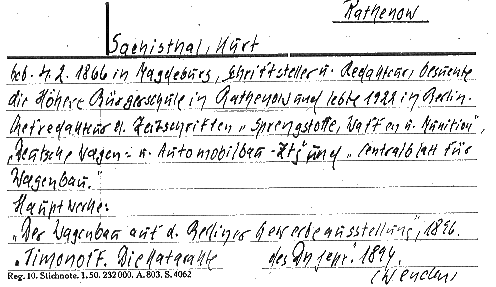 Rathenow
Sachisthal, Kurt
geb. 4.2. 1866 in Magdeburg, Schriftsteller u. Redakteur, besuchte
die Höhere Bürgerschule in Rathenow und lebte 1922 in Berlin.
Chefredakteur d. Zeitschriften „Sprengstoffe, Waffen u. Munition",
„Deutsche Wagen- u. Automobilbau-Ztg" und „Centralblatt für
Wagenbau."
Hauptwerke:
„Der Wagenbau auf d. Berliner Gewerbeausstellung", 1896.
„Timonoff. Die Katarakte des Dnjepr." 1894.
(Wenden)
Reg. 10. Stichnote. 1.50. 232000. A. 803. S. 4062